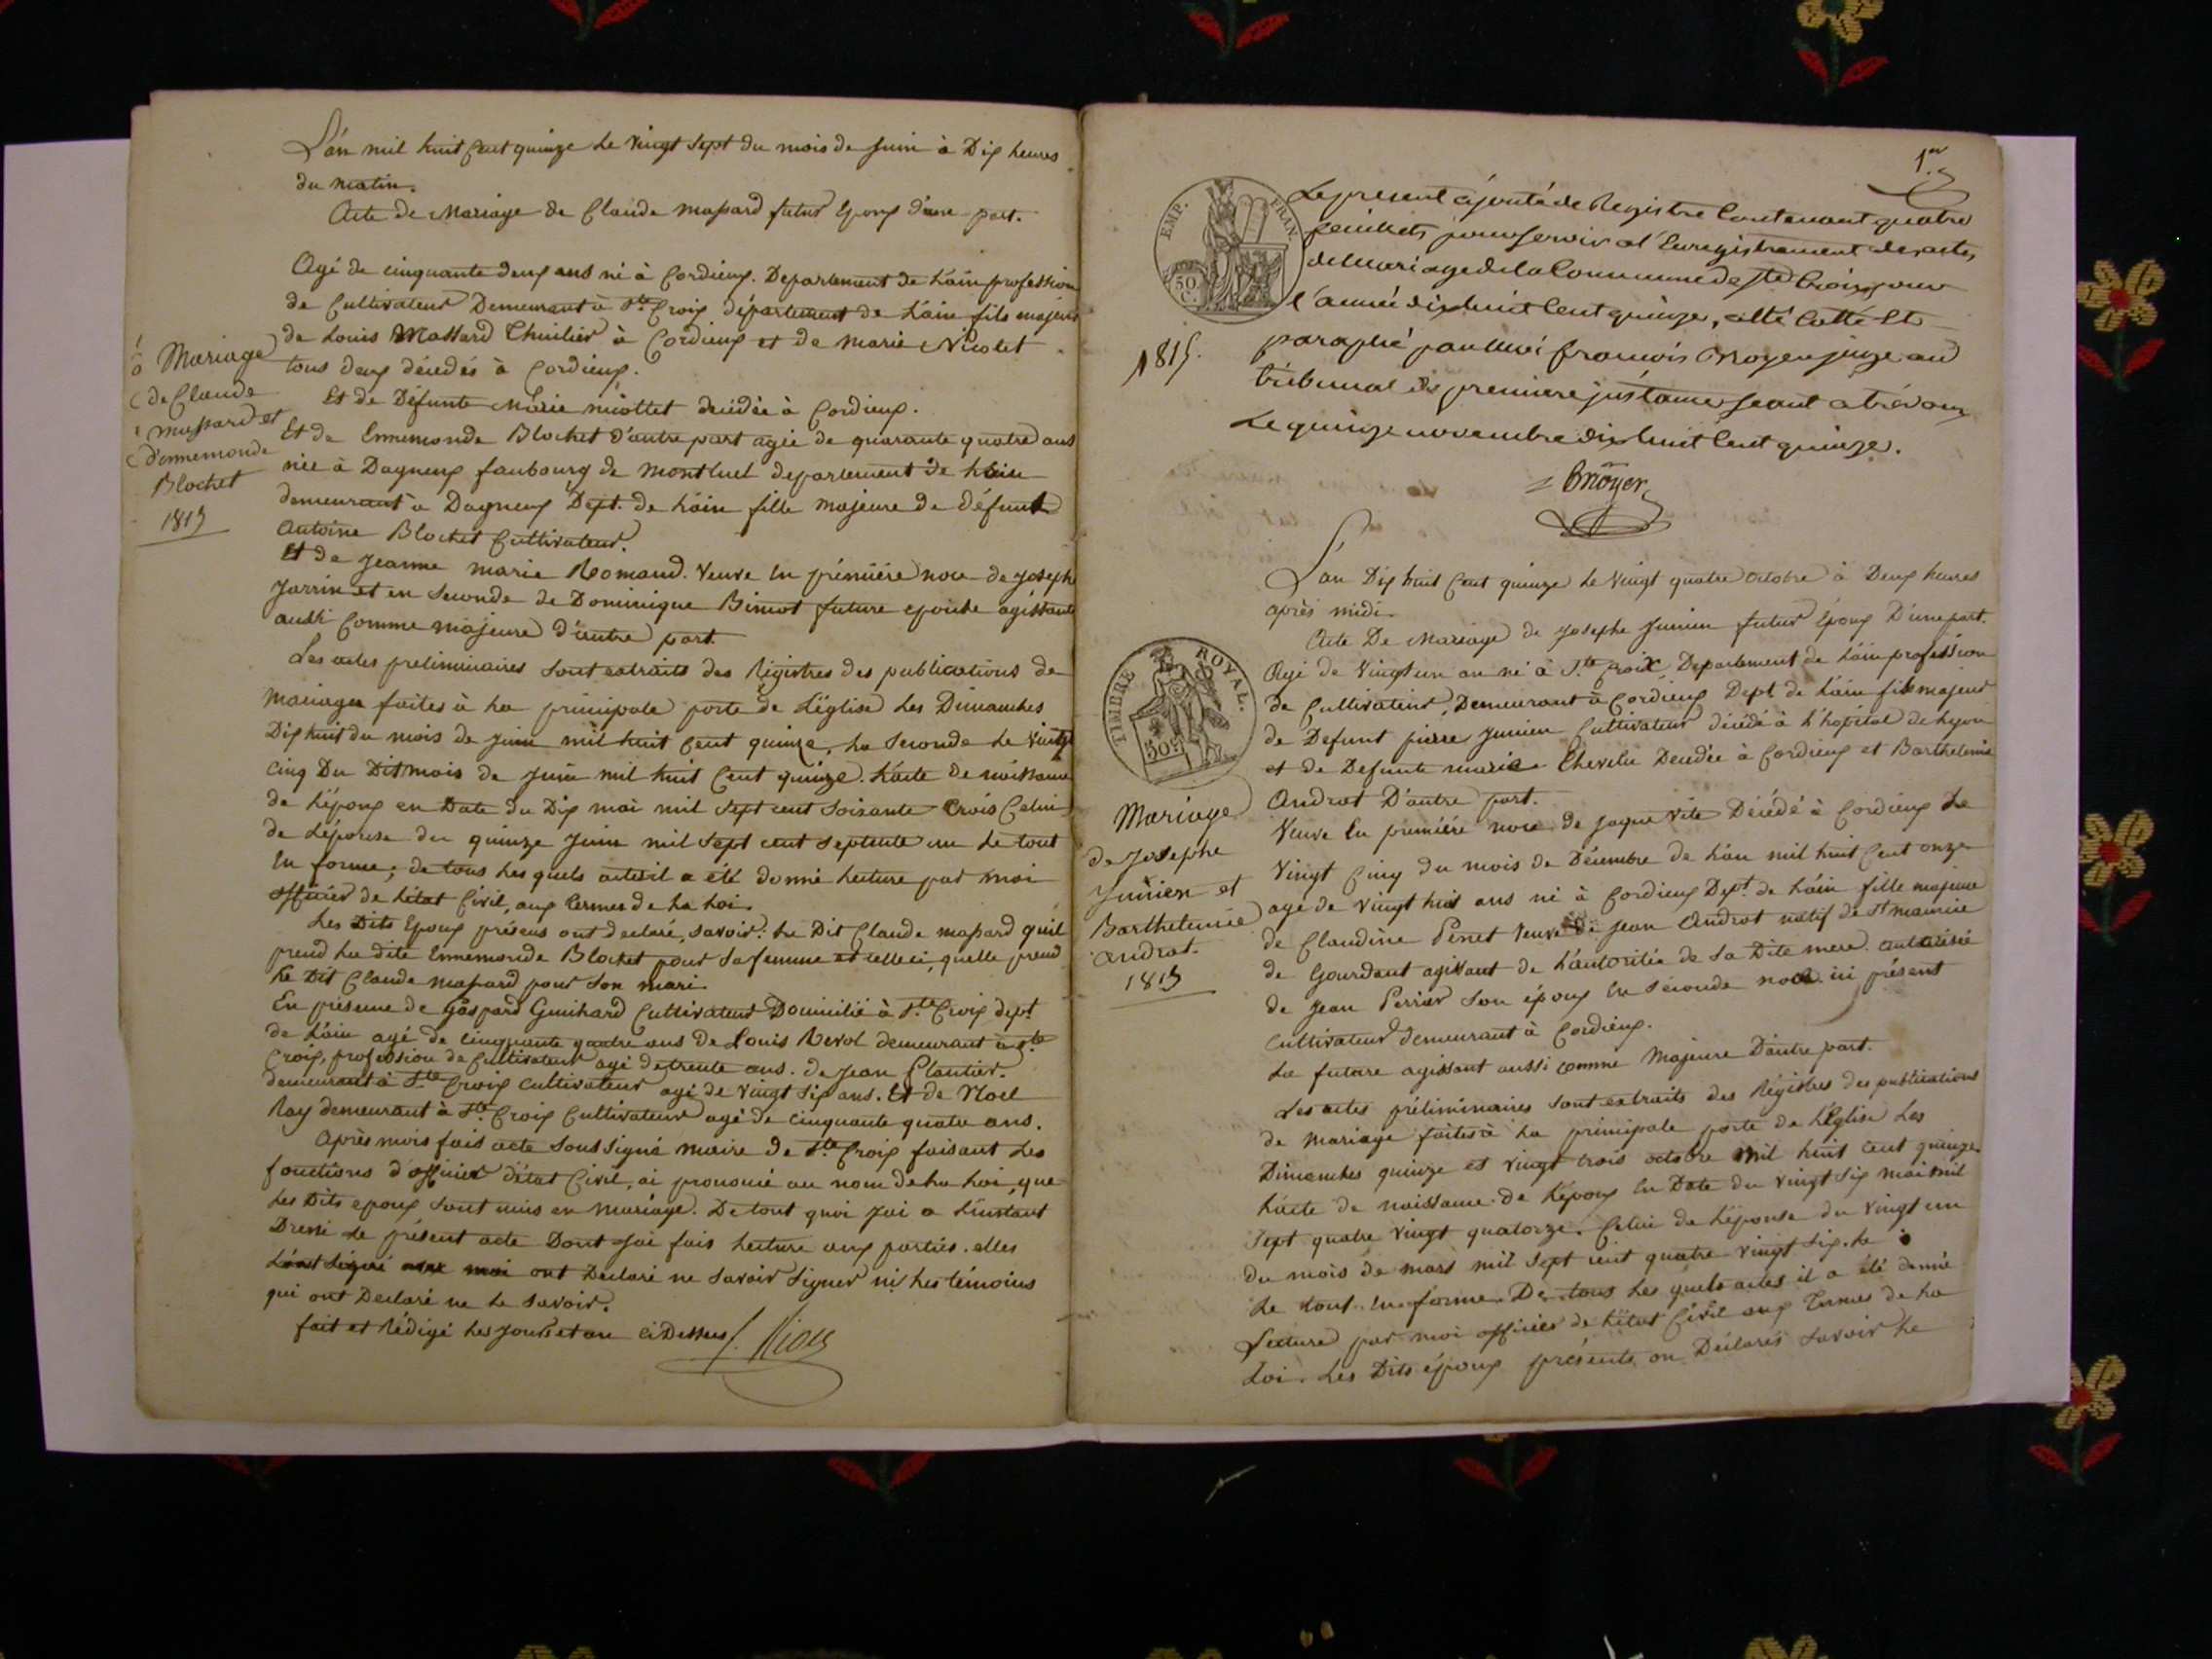 L'an mil huit Cent quinze Le Vingt Sept du mois de Juin à Dix heures
du matin.
Acte de Mariage de Claude massard futur Epoux d'une part.
Agé de cinquante deux ans né à Cordieux. Departement de L'ain profession
de Cultivateur Demeurant à Ste Croix département de L'ain fils majeur
de Louis Massard Thuilier à Cordieux et de Marie Nicolet
tous deux décédés à Cordieux.
Et de Défunte Marie niollet décédée à Cordieux.
Et de Ennemonde Blochet d'autre part agée de quarante quatre ans
née à Dagneux faubourg de Montluel departement de L'ain
demeurant à Dagneux Dept. de L'ain fille majeure de Défunt
Antoine Blochet Cultivateur.
Et de Jeanne Marie Romand. Veuve en prémière noce de Joseph
Jarrin et en Seconde de Dominique Bimot future epouse agissante
aussi Comme majeure d'autre part.
Les actes preliminaires Sont extraits des Régistres des publications de
Mariages faites à La principale porte de L'église Les Dimanches
Dix huit du mois de Juin mil huit Cent quinze, La Seconde Le Vingt
Cinq Du Dit mois de Juin mil huit Cent quinze. L'acte de naissance
de L'époux en Date du Dix mai mil Sept cent Soixante trois Celui
de L'épouse du quinze Juin mil Sept cent Septente un Le tout
En forme; de tous Les quels actes il a été donné Lecture par moi
officier de L'état Civil, aux termes de La Loi.
Les Dits Epoux présens ont declaré, Savoir: Le Dit Claude massard qu'il
prend La dite Ennemonde Blochet pour Sa femme et celle ci, quelle prend
Le Dit Claude massard pour Son mari
En présence de Gaspard Guichard Cultivateur Domicilié à Ste Croix dept
de L'ain agé de Cinquante quatre ans de Louis Revol demeurant à Ste
Croix, profession de Cultivateur agé de trente ans. de Jean Plantier.
demeurant à Ste Croix Cultivateur agé de Vingt Six ans. Et de Noel
Ray demeurant à Ste Croix Cultivateur agé de Cinquante quatre ans.
Après mois fais acte Sous Signé maire de Ste Croix faisant Les
fonctions d'officier d'état Civil, ai prononcé au nom de La Loi, que
Les Dits epoux Sont unis en Mariage. De tout quoi J'ai a L'instant
Dressé Le présent acte Dont J'ai fais Lecture aux parties. elles
L'ont Signé avec moi ont Declaré ne Savoir Signer ni Les témoins
qui ont Declaré ne Le Savoir.
fait et Rédigé Les Jour et an ci Dessus
Mariage
de Claude
massard et
d'ennemonde
Blochet
1815
1er
EMP. FRAN.
50 C.
Le present ajouté de Registre Contenant quatre
feuillets pour servir a l'Enregistrement des actes
de Mariage de la Commune de Ste Croix pour
l'année dix huit Cent quinze, a été Cotté Et
paraphé par Moi françois Moyer juge au
tribunal de premiere instance Seant a trévoux
Le quinze novembre dix huit Cent quinze.
Moyer
1815.
L'an Dix huit Cent quinze Le Vingt quatre octobre à Deux heures
après midi.
Acte De Mariage de Josephe Junien futur Epoux D'une part.
Agé de Vingt un an né à Ste Croix Departement de L'ain profession
de Cultivateur, Demeurant à Cordieux Dept de L'ain fils majeur
de Defunt pierre Junien Cultivateur décédé à L'hopital de Lyon
et de Defunte marie Chevelu Décédée à Cordieux et Barthelemie
Androt D'autre part.
Veuve En première noce de Jaque Vite Décédé à Cordieux Le
Vingt Cinq du mois de Décembre de L'an mil huit Cent onze
agé de Vingt huit ans né à Cordieux Dept de L'ain fille majeure
de Claudine Penet Veuve de Jean Androt natif de St Maurice
de Gourdant agissant de L'autorité de Sa Dite mere autorisée
de Jean Perrier Son époux En Séconde noce ici présent
Cultivateur demeurant à Cordieux.
La future agissant aussi comme Majeure D'autre part.
Les actes préliminaires Sont extraits des Régistres des publications
de Mariage faites à La principale porte de L'église Les
Dimanches quinze et Vingt trois octobre mil huit Cent quinze
L'acte de naissance de L'époux En Date du Vingt Six mai mil
Sept quatre Vingt quatorze. Celui de L'épouse du Vingt un
du mois de mars mil Sept cent quatre Vingt Six. Le
Le tout En forme. De tous Les quels actes il a été donné
Lecture par moi officier de L'état Civil aux Termes de La
Loi. Les Dits époux présents on Déclarés Savoir Le
TIMBRE ROYAL.
50 c
Mariage
de Josephe
Junien et
Barthelemie
Androt.
1815